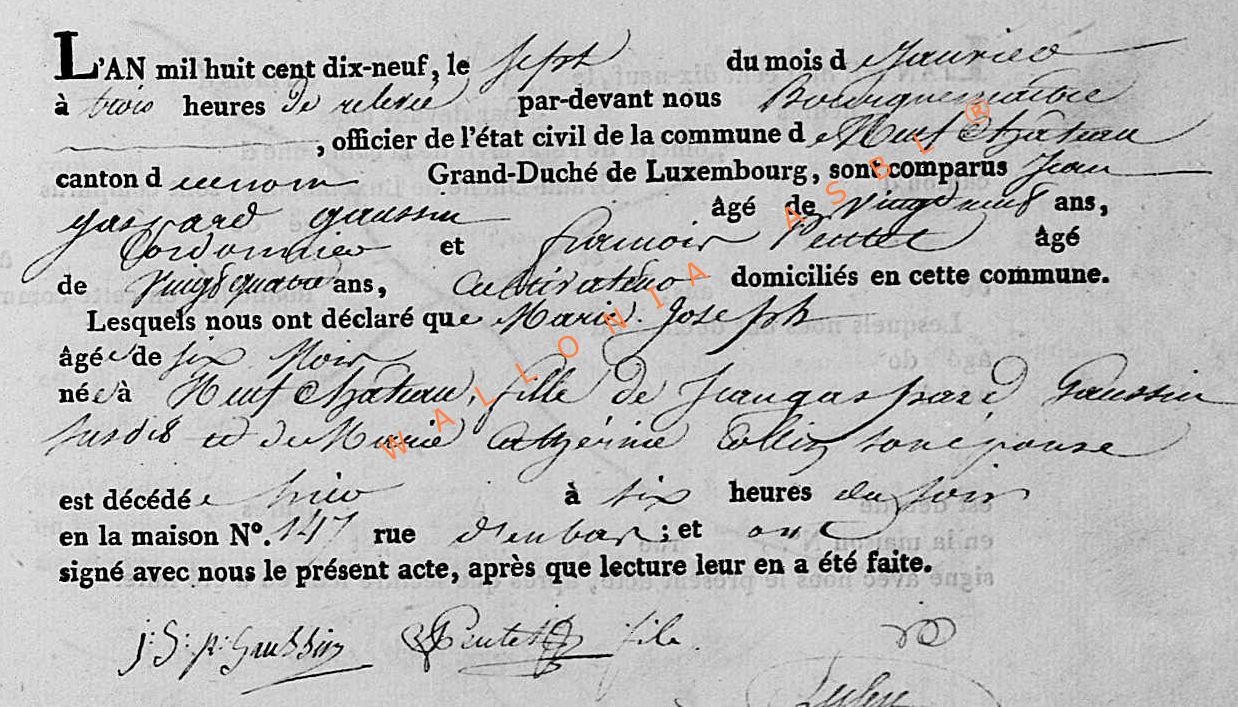 L'AN mil huit cent dix-neuf, le sept du mois de Janvier
à trois heures de relevée par-devant nous Bourguemaitre
, officier de l'état civil de la commune de Neufchâteau
canton d Grand-Duché de Luxembourg, sont comparus Jean
gaspard gaussin âgé de vingt neuf ans,
Cordonnier et francois Pentet âgé
de vingt quatre ans, Cultivateur domiciliés en cette commune.
Lesquels nous ont déclaré que Marie Joseph
âgée de six Mois
née à Neufchâteau, fille de Jean gaspard Gaussin
susdit et de Marie Catherine Collin son epouse
est décédée hier à six heures du soir
en la maison N°. 147 rue d'en bas; et ont
signé avec nous le présent acte, après que lecture leur en a été faite.
j: g: Gaussin Pentet fils
WALLONIA ASBL ®